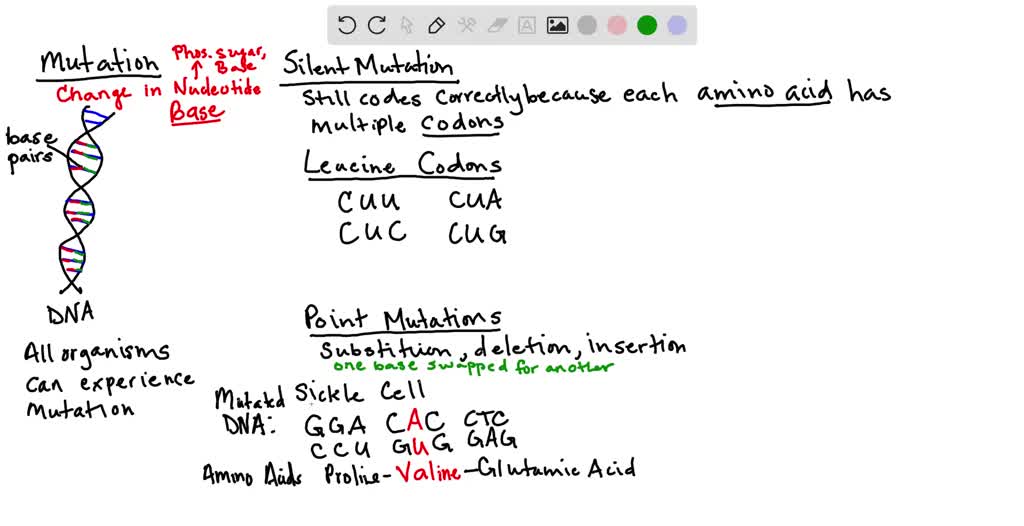 Mutation
Phos. sugar,
Base
Change in Nucleotide
Base
base
pairs
DNA
All organisms
can experience
Mutation
Silent Mutation
Still codes correctly because each amino acid has
multiple codons
Leucine Codons
CUU CUA
CUC CUG
Point Mutations
Substituion, deletion, insertion
one base swapped for another
Mutated Sickle Cell
DNA: GGA CAC CTC
CCU GUG GAG
Amino Acids Proline-Valine-Glutamic Acid